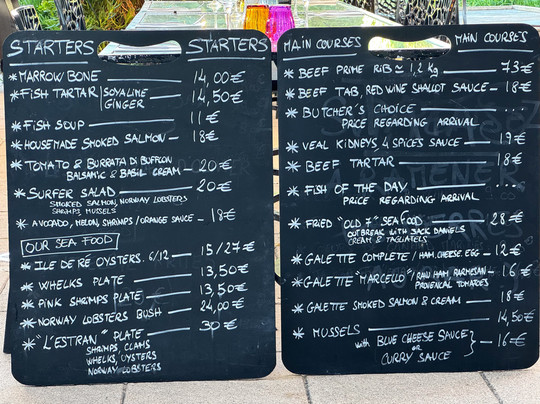 STARTERS STARTERS
* MARROW BONE 14,00€
* FISH TARTAR SOYALIME 14,50€
GINGER
* FISH SOUP 11€
* HOUSEMADE SMOKED SALMON 18€
* TOMATO & BURRATA DI BUFFLON 20€
BALSAMIC & BASIL CREAM
* SURFER SALAD 20€
SMOKED SALMON, NORWAY LOBSTERS
SHRIMPS, MUSSELS
* AVOCADO, MELON, SHRIMPS/ORANGE SAUCE - 18€
OUR SEA FOOD
* ILE DE RÉ OYSTERS. 6/12 15/27€
* WHELKS PLATE 13,50€
* PINK SHRIMPS PLATE 13,50€
* NORWAY LOBSTERS BUSH 24,00€
* "L'ESTRAN" PLATE 30€
SHRIMPS, CLAMS
WHELKS, OYSTERS
NORWAY LOBSTERS
MAIN COURSES MAIN COURSES
* BEEF PRIME RIB ≃ 1,2 Kg 73€
* BEEF TAB, RED WINE SHALLOT SAUCE - 18€
* BUTCHER'S CHOICE ....
PRICE REGARDING ARRIVAL
* VEAL KIDNEYS 4 SPICES SAUCE 17€
* BEEF TARTAR 18€
* FISH OF THE DAY ....
PRICE REGARDING ARRIVAL
* FRIED "OLD 7" SEAFOOD 28€
OUTBREAK WITH JACK DANIELS
CREAM & TAGLIATELS
* GALETTE COMPLETE / HAM, CHEESE, EGG - 12€
* GALETTE "MARCELLO" / RAW HAM, PARMESAN - 16€
PROVENCAL TOMATOES
* GALETTE SMOKED SALMON & CREAM 18€
* MUSSELS 14,50€
with BLUE CHEESE SAUCE - 16€
OR
CURRY SAUCE